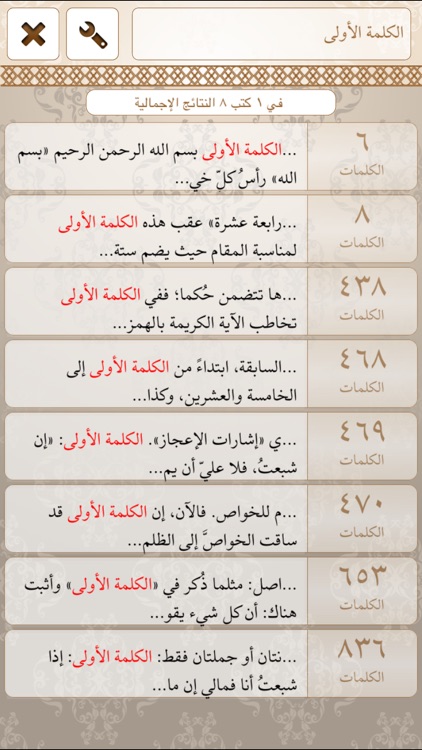 الكلمة الأولى
في ١ كتب ٨ النتائج الإجمالية
٦
الكلمات
...الكلمة الأولى بسم الله الرحمن الرحيم «بسم
الله» رأسُ كلّ خي...
٨
الكلمات
...رابعة عشرة» عقب هذه الكلمة الأولى
لمناسبة المقام حيث يضم ستة...
٤٣٨
الكلمات
...ها تتضمن حُكما؛ ففي الكلمة الأولى
تخاطب الآية الكريمة بالهمز...
٤٦٨
الكلمات
...السابقة، ابتداءً من الكلمة الأولى إلى
الخامسة والعشرين، وكذا...
٤٦٩
الكلمات
...ي «إشارات الإعجاز». الكلمة الأولى: «إن
شبعتُ، فلا عليّ أن يم...
٤٧٠
الكلمات
...م للخواص. فالآن، إن الكلمة الأولى قد
ساقت الخواصَّ إلى الظلم...
٦٥٣
الكلمات
...اصل: مثلما ذُكر في «الكلمة الأولى» وأثبت
هناك: أن كل شيء يقو...
٨٣٦
الكلمات
...نتان أو جملتان فقط: الكلمة الأولى: إذا
شبعتُ أنا فمالي إن ما...